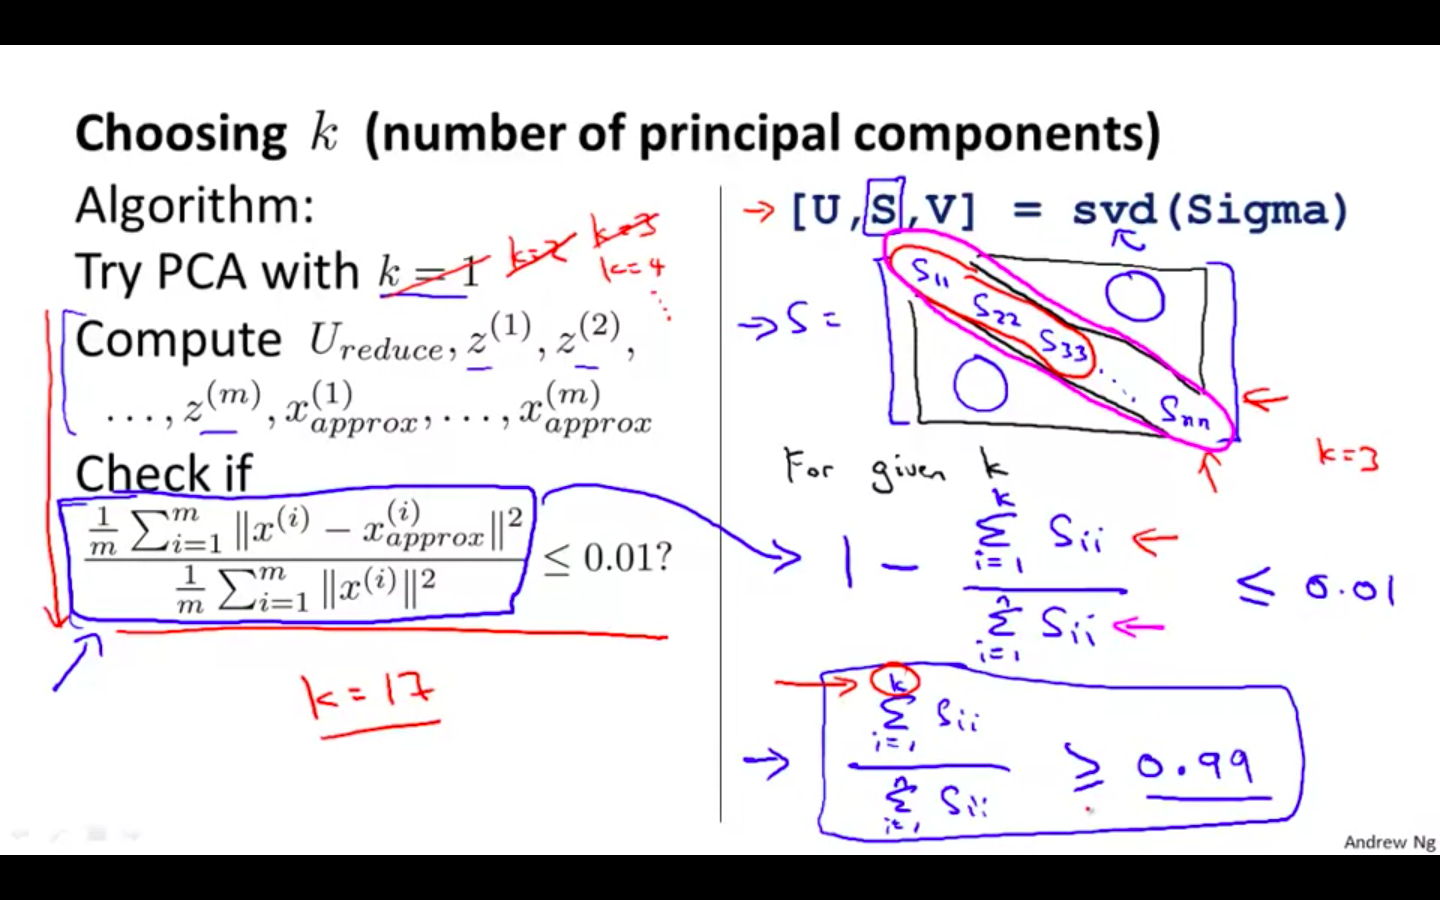 Choosing k (number of principal components)
Algorithm:
Try PCA with k = 1 k=2 k=3
k=4
Compute U_reduce, z^(1), z^(2),
..., z^(m), x_approx^(1), ..., x_approx^(m)
Check if
\frac{\frac{1}{m} \sum_{i=1}^{m} ||x^(i) − x_approx^(i)||^2}{\frac{1}{m} \sum_{i=1}^{m} ||x^(i)||^2} ≤ 0.01?
k = 17
[U,S,V] = svd(Sigma)
S =
S11
S22
S33
Snn
k=3
For given k
1 − \frac{\sum_{i=1}^{k} Sii}{\sum_{i=1}^{n} Sii} ≤ 0.01
\frac{\sum_{i=1}^{k} Sii}{\sum_{i=1}^{n} Sii} ≥ 0.99
Andrew Ng